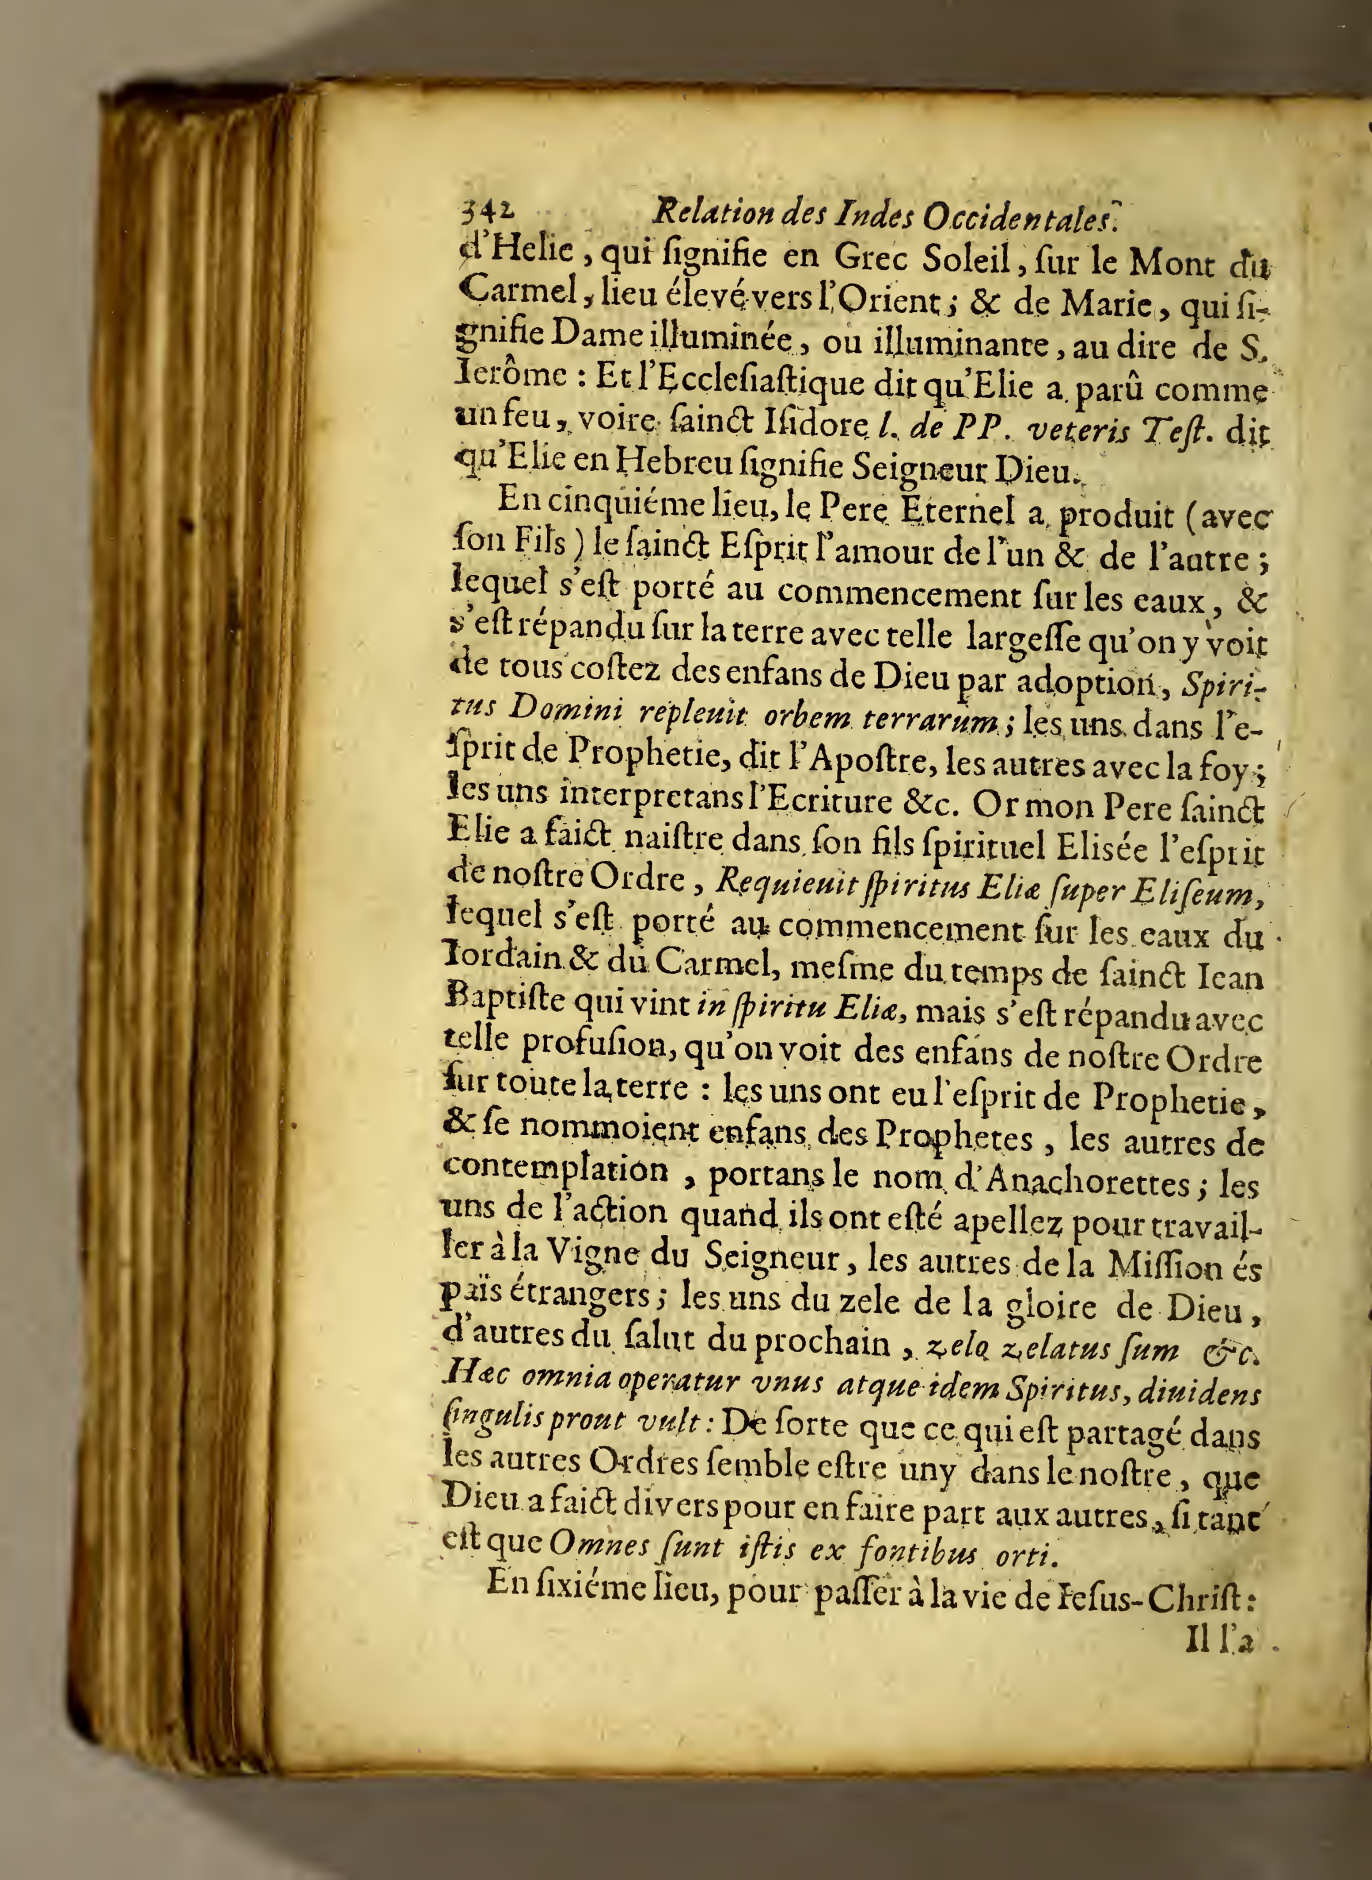 342 Relation des Indes Occidentales.
d'Helie, qui ſignifie en Grec Soleil, ſur le Mont du
Carmel, lieu élevé vers l'Orient; & de Marie, qui ſi-
gnifie Dame illuminée, ou illuminante, au dire de S.
Ierôme : Et l'Eccleſiaſtique dit qu'Elie a parû comme
un feu, voire ſainct Iſidore l. de PP. veteris Teſt. dit
qu'Elie en Hebreu ſignifie Seigneur Dieu.
En cinquiéme lieu, le Pere Eternel a produit (avec
ſon Fils) le ſainct Eſprit l'amour de l'un & de l'autre;
lequel s'eſt porté au commencement ſur les eaux, &
s'eſt répandu ſur la terre avec telle largeſſe qu'on y voit
de tous coſtez des enfans de Dieu par adoption, Spiri-
tus Domini repleuit orbem terrarum; les uns dans l'e-
ſprit de Prophetie, dit l'Apoſtre, les autres avec la foy;
les uns interpretans l'Ecriture &c. Or mon Pere ſainct
Elie a faict naiſtre dans ſon fils ſpirituel Elisée l'eſprit
de noſtre Ordre, Requieuit ſpiritus Eliæ ſuper Eliſeum,
lequel s'eſt porté au commencement ſur les eaux du
Iordain & du Carmel, meſme du temps de ſainct Iean
Baptiſte qui vint in ſpiritu Eliæ, mais s'eſt répandu avec
telle profuſion, qu'on voit des enfans de noſtre Ordre
ſur toute la terre : les uns ont eu l'eſprit de Prophetie,
& ſe nommoient enfans des Prophetes, les autres de
contemplation, portans le nom d'Anachorettes; les
uns de l'action quand ils ont eſté apellez pour travail-
ler à la Vigne du Seigneur, les autres de la Miſſion és
païs étrangers; les uns du zele de la gloire de Dieu,
d'autres du ſalut du prochain, zelo zelatus ſum &c.
Hæc omnia operatur vnus atque idem Spiritus, diuidens
ſingulis prout vult : De ſorte que ce qui eſt partagé dans
les autres Ordres ſemble eſtre uny dans le noſtre, que
Dieu a faict divers pour en faire part aux autres, ſi tant
eſt que Omnes ſunt iſtis ex fontibus orti.
En ſixiéme lieu, pour paſſer à la vie de Ieſus-Chriſt :
Il l'a